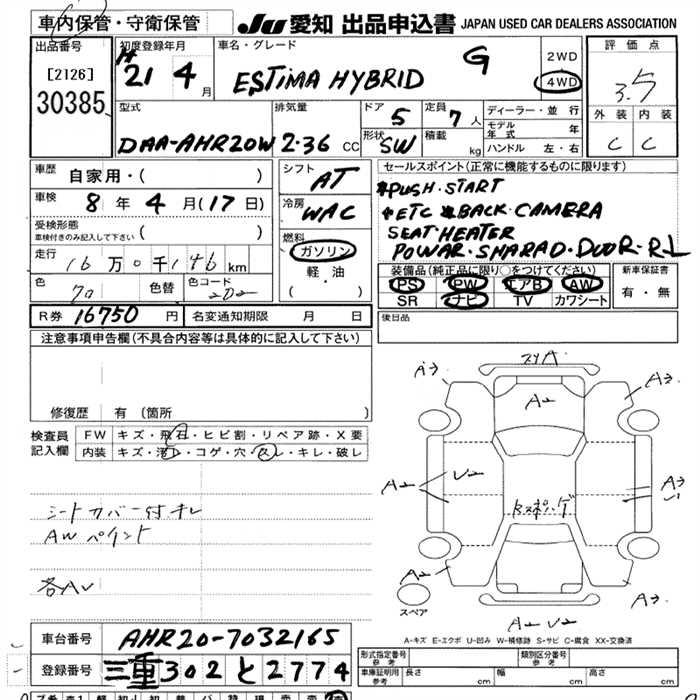 車内保管・守衛保管
JU 愛知 出品申込書 JAPAN USED CAR DEALERS ASSOCIATION
出品番号
[2126]
30385
初度登録年月
H21 4月
車名・グレード
ESTIMA HYBRID G
2WD
4WD
評価点
3.5
外装 内装
C C
型式
DAA-AHR20W
排気量
2.36 CC
ドア 5
形状 SW
定員 7人
積載 kg
ディーラー・並行
モデル年式 年
ハンドル 左・右
車歴 自家用・( )
車検 8年4月(17日)
受検形態
車検付きのみ記入して下さい ( )
走行 16万0千146km
色 70 色替 色コード 2D2
シフト AT
冷房 WAC
燃料
ガソリン
軽・油
( )
セールスポイント(正常に機能するものに限ります)
*PUSH・START
*ETC *BACK・CAMERA
SEAT HEATER
POWAR・SHARAD・DOOR・RL
装備品(純正品に限り○をつけてください)
PS PW エアB AW
SR ナビ TV カワシート
新車保証書
有・無
R券 16750円 名変通知期限 月 日
後日品
注意事項申告欄(不具合内容等は具体的に記入して下さい)
修復歴 有(箇所 )
検査員記入欄
FW キズ・飛石・ヒビ割・リペア跡・X要
内装 キズ・汚レ・コゲ・穴・スレ・キレ・破レ
シートカバー付キレ
AWペイント
各AU
スリA
A3
A2
A3
A2
U2
A3
Rスポンゲ
A2
A3
A2 U2
スペア
A-キズ E-エクボ U-凹み W-補修跡 S-サビ C-腐食 XX-交換済
車台番号 AHR20-7032165
登録番号 三重302と2774
形式指定番号 参考
類別区分番号 参考
車庫証明用 参考 長さ cm 幅 cm 高さ cm